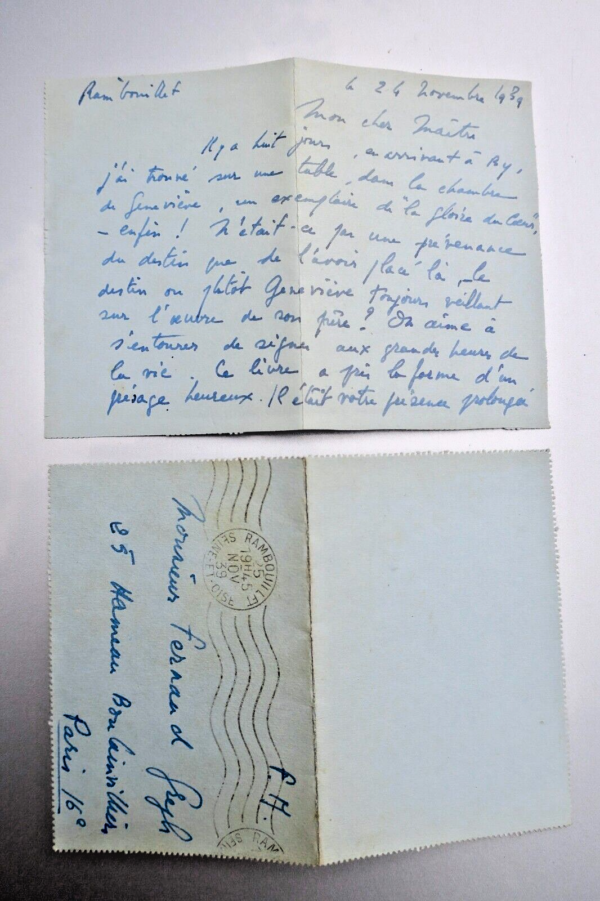 Rambouillet
le 24 novembre 1939
Mon cher Maître
Il y a huit jours, en arrivant à By,
j'ai trouvé sur une table, dans la chambre
de Geneviève, un exemplaire de "la gloire du Cœur"
- enfin ! N'était-ce pas une prévenance
du destin que de l'avoir placé là, le
destin ou plutôt Geneviève toujours veillant
sur l'œuvre de son père ? On aime à
s'entourer de signes aux grandes heures de
la vie. Ce livre a pris la forme d'un
présage heureux. Il était votre présence prolongée
Monsieur Fernand Gregh
25 Hameau Boulainvilliers
Paris 16e
F. M.
RAMBOUILLET
19H45
25
NOV
39
SEINE-ET-OISE
RAM
SEI